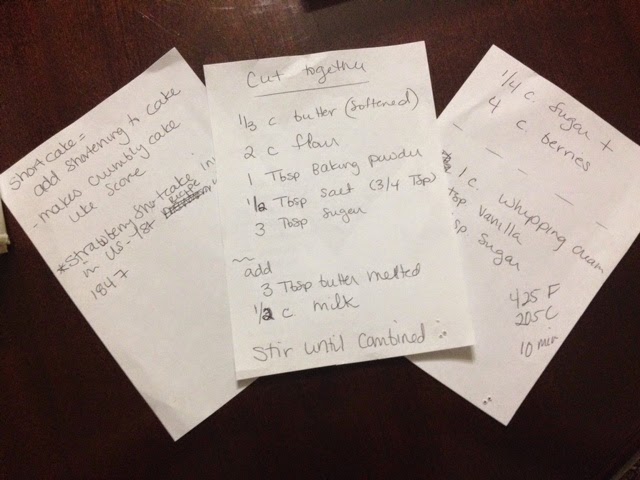 Shortcake =
add shortening to cake
- makes crumbly cake
like scone
*Strawberry Shortcake in
in US - 1st recipe
1847
Cut together
1/3 c butter (softened)
2 c flour
1 Tbsp Baking powder
1/2 Tbsp salt (3/4 Tsp)
3 Tbsp sugar
~~
add
3 Tbsp butter melted
1/2 c milk
Stir until combined
1/4 c. sugar +
4 c. berries
— — — — —
1 c. whipping cream
vanilla
sugar
425 F
205 C
10 min